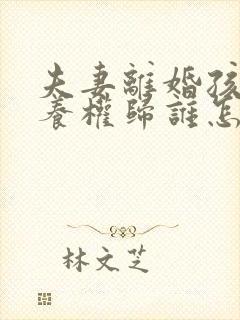 夫妻離婚孩
養權歸誰怎
林文芝